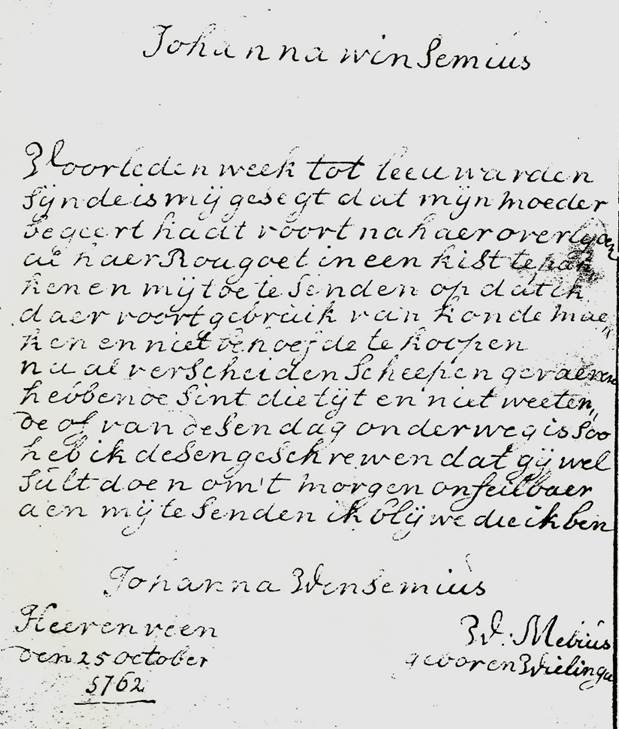 Johanna winsemius
Voorleden week tot leeuwarden
sijnde is mij gesegt dat mijn moeder
begeert hadt voort na haer overlijden
al haer Rougoet in een kist te pak
ken en mij toe te senden op dat ik
daer voort gebruik van konde mae„
ken en niet behoefde te koopen
nu al verscheiden scheepen gevaeren
hebbende sint die tijt en niet weeten„
de of van desen dag onderweg is soo
heb ik desen geschrewen dat gij wel
sult doen om't morgen onfeilbaer
aen mij te senden ik blijwe die ik ben
Johanna Winsemius
Heerenveen
den 25 october
1762
W: Mebius
geboren Wielinga